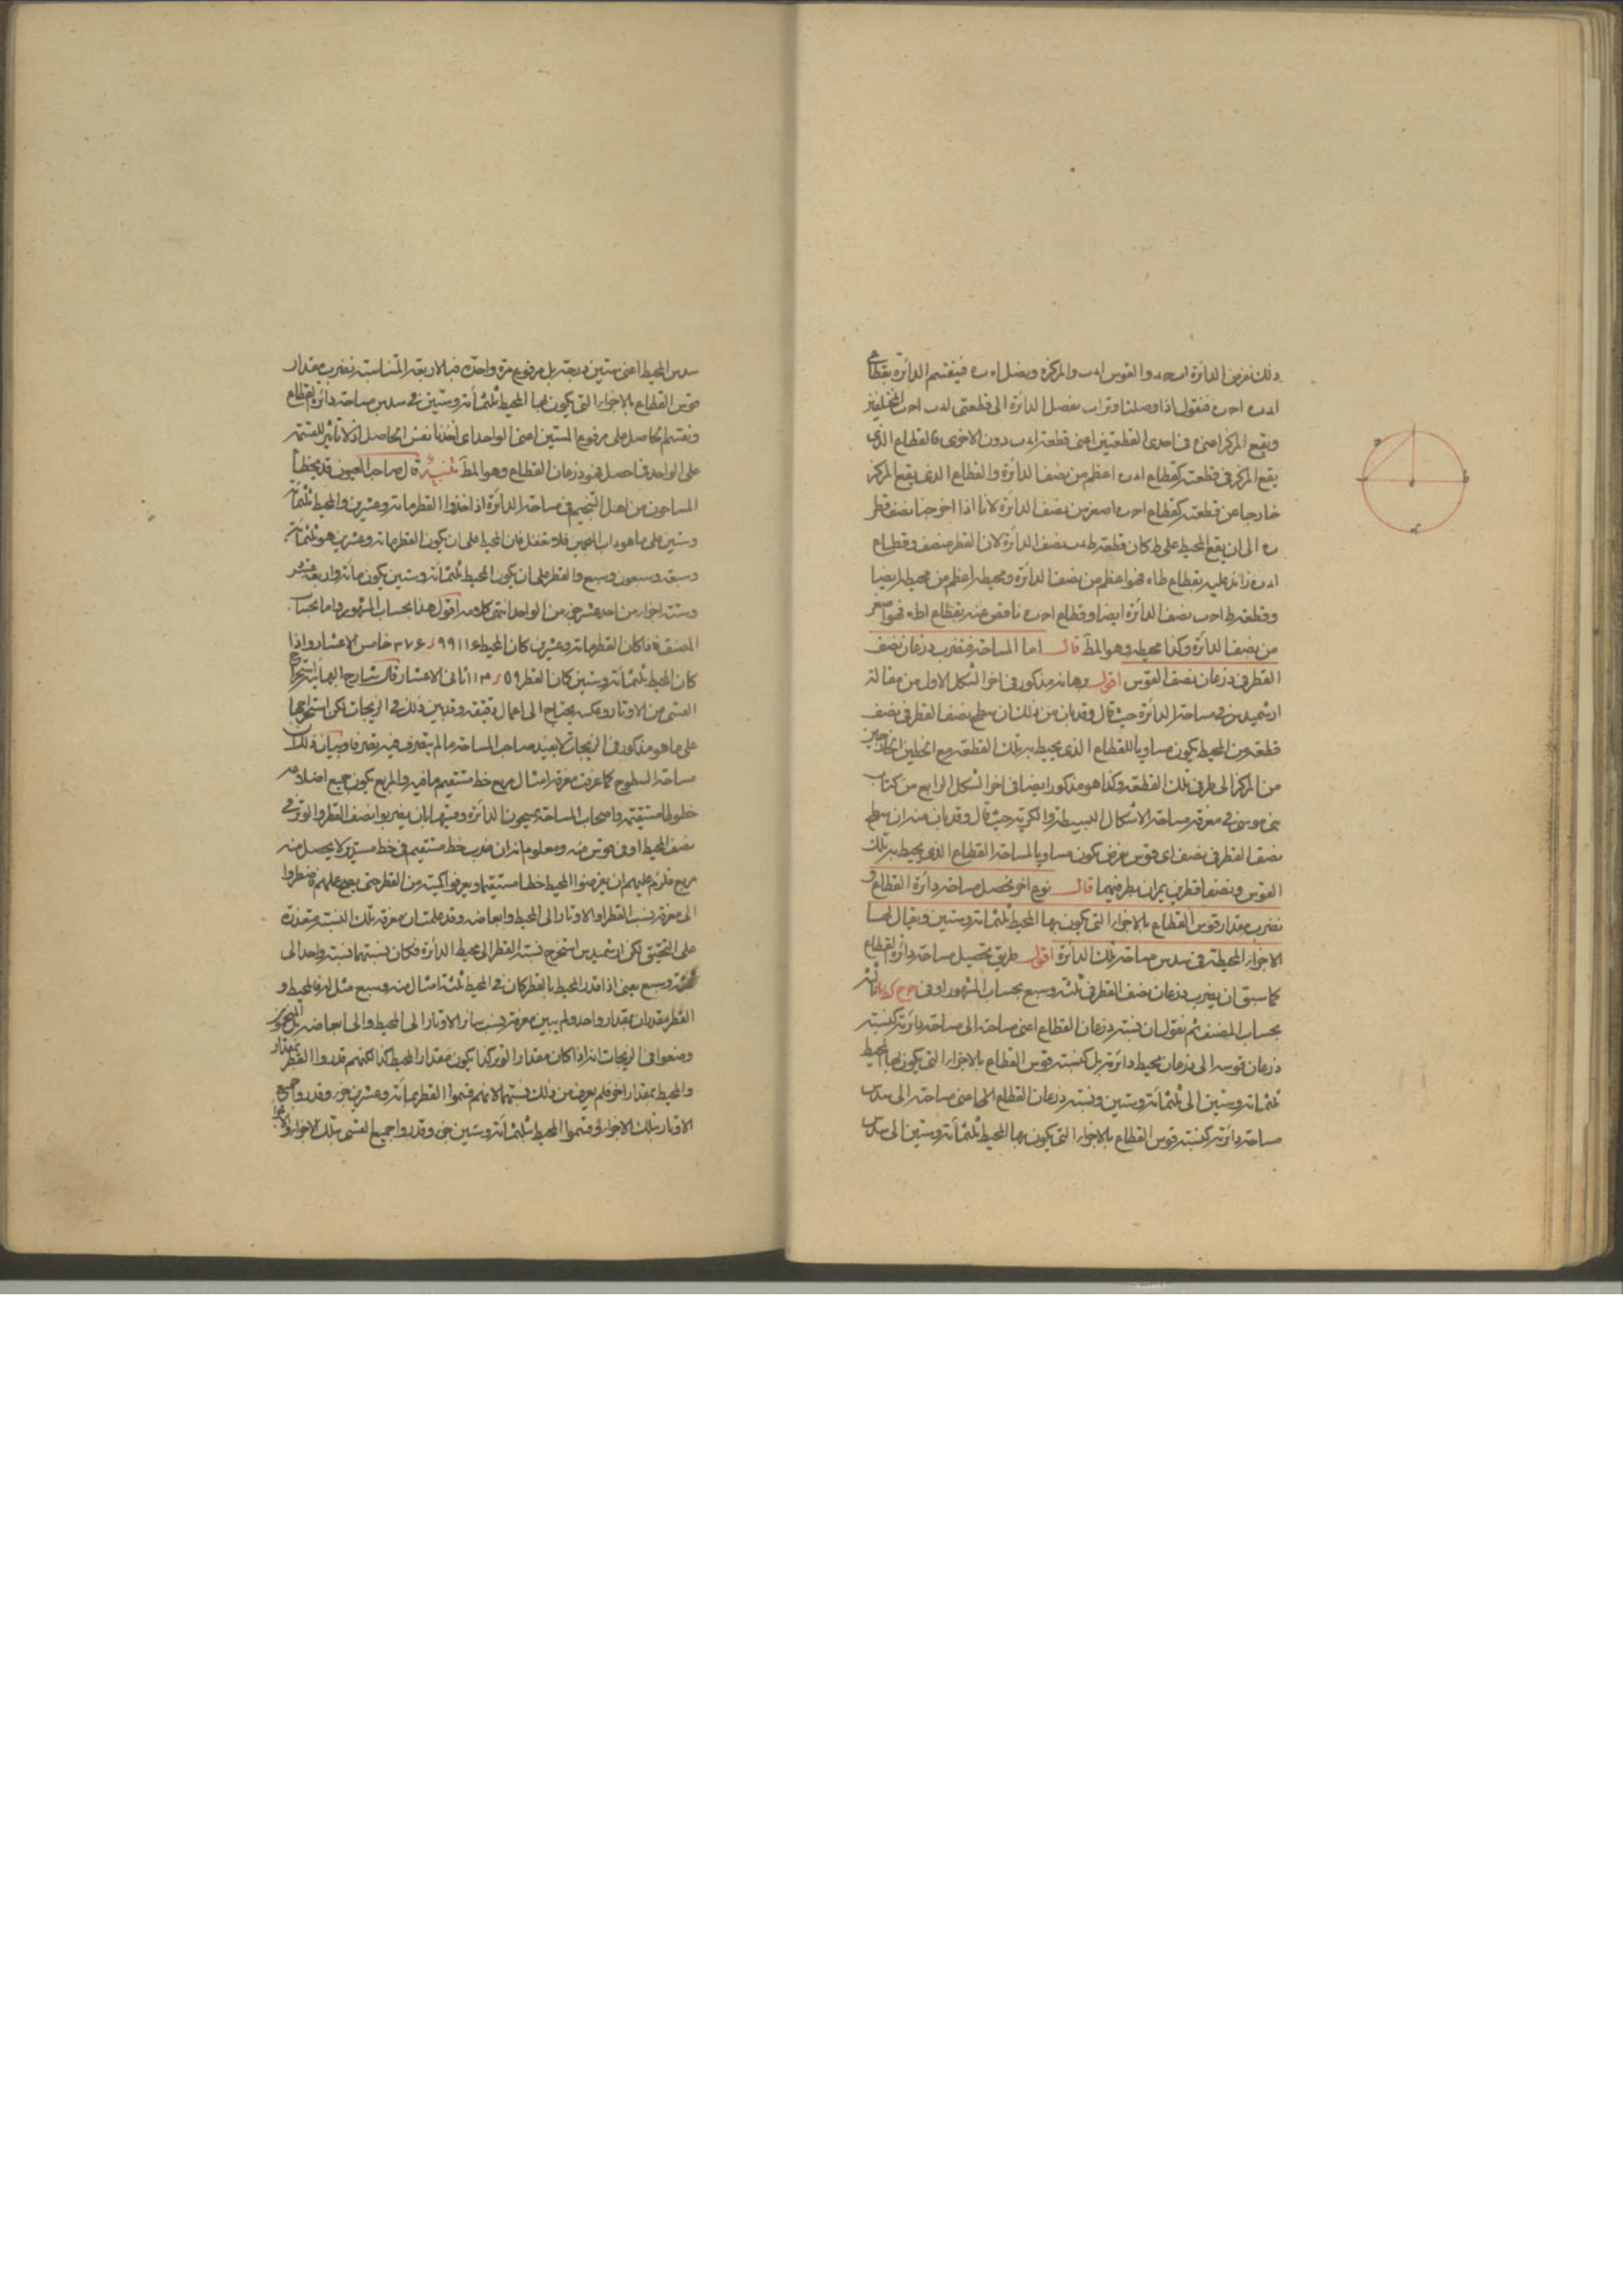 ذلك نفرض الدائرة ا ب ج د والقوس ا د ب والمركز ه ونصل ا ه ب فينقسم الدائرة بقطاعي
ا د ب ا ج ب فنقول اذا وصلنا وتر ا ب نفصل الدائرة الى قطعتي ا د ب ا ج ب المختلفين
ويقع المركز اعني ه في احدى القطعتين اعني قطعة ا د ب دون الاخرى فالقطاع الذي
يقع المركز في قطعته كقطاع ا د ب اعظم من نصف الدائرة والقطاع الذي يقع المركز
خارجا عن قطعته كقطاع ا ج ب اصغر من نصف الدائرة لانا اذا اخرجنا نصف قطر
ب ه الى ان يقع المحيط على ط كان قطعة ط د ب نصف الدائرة لان القطر منصف وقطاع
ا د ب زائد عليه بقطاع ط ا ه فهو اعظم من نصف الدائرة ومحيطه اعظم من محيطه ايضا
وقطعة ط ا ج ب نصف الدائرة ايضا وقطاع ا ج ب ناقص عنه بقطاع ا ط ه فهو اصغر
من نصف الدائرة وكذا محيطه وهو المط قال اما المساحة فنضرب ذرعان نصف
القطر في ذرعان نصف القوس اقول برهانه مذكور في اخر الشكل الاول من مقالة
ارشميدس في مساحة الدائرة حيث قال وقد بان من ذلك ان سطح نصف القطر في نصف
قطعة من المحيط يكون مساويا للقطاع الذي يحيط به تلك القطعة مع الخطين الخارجين
من المركز الى طرفي تلك القطعة وكذا هو مذكور ايضا في اخر الشكل الرابع من كتاب
بني موسى في معرفة مساحة الاشكال البسيطة والكرية حيث قال وقد بان منه ان سطح
نصف القطر في نصف اي قوس يفرض يكون مساويا لمساحة القطاع الذي يحيط به تلك
القوس ونصفا قطرين يمران بطرفيها قال نوع اخر نحصل مساحة دائرة القطاع و
نضرب مقدار قوس القطاع بالاجزاء التي يكون بها المحيط ثلثمائة وستين ويقال لها
الاجزاء المحيطية في سدس مساحة تلك الدائرة اقول طريق تحصيل مساحة دائرة القطاع
كما سبق ان يضرب ذرعان نصف القطر في ثلثة وسبع بحساب المشهور او في
بحساب المصنف ثم نقول ان نسبة ذرعان القطاع اعني مساحته الى مساحة دائرته كنسبة
ذرعان قوسه الى ذرعان محيط دائرته بل كنسبة قوس القطاع بالاجزاء التي يكون بها المحيط
ثلثمائة وستين الى ثلثمائة وستين ونسبة ذرعان القطاع اعني مساحته الى سدس
مساحة دائرته كنسبة قوس القطاع بالاجزاء التي يكون بها المحيط ثلثمائة وستين الى سدس
سدس المحيط اعني ستين درجة بل مرفوع مرة واحدة فبالاربعة المتناسبة نضرب مقدار
قوس القطاع بالاجزاء التي يكون بها المحيط ثلثمائة وستين في سدس مساحة دائرة القطاع
ونقسم الحاصل على مرفوع الستين اعني الواحد اي اخذنا نفس الحاصل اذ لا تاثير للقسمة
على الواحد فما حصل فهو ذرعان القطاع وهو المط تنبيه قال صاحب العيون قد يخطأ
المساحون من اهل التنجيم في مساحة الدائرة اذا اخذوا القطر مائة وعشرين والمحيط ثلثمائة
وستين على ما هو داب المنجمين فلا تغفل فان المحيط على ان يكون القطر مائة وعشرين هو ثلثمائة
وسبعة وسبعون وسبع والقطر على ان يكون المحيط ثلثمائة وستين يكون مائة واربعة عشر
وستة اجزاء من احد عشر جزء من الواحد انتهى كلامه اقول هذا بحساب المشهور واما بحساب
المصنف فاذا كان القطر مائة وعشرين كان المحيط خامس الاعشار واذا
كان المحيط ثلثمائة وستين كان القطر ثاني الاعشار قال شارح البهائية استخراج
القسي من الاوتار وعكسه يحتاج الى اعمال دقيقة وقد بين ذلك في الزيجات لكن استخراجها
على ما هو مذكور في الزيجات لا يفيد صاحب المساحة ما لم يتصرف فيه تصرفا وبيان ذلك ان
مساحة السطوح كما عرفت معرفة امثال مربع خط مستقيم ما فيه والمربع يكون جميع اضلاعه
خطوطا مستقيمة واصحاب المساحة يمسحون الدائرة وقسيها بان يضربوا نصف القطر او الوتر في
نصف المحيط او في قوس منه ومعلوم انه ان ضرب خط مستقيم في خط مستدير لا يحصل منه
مربع فلزم عليهم ان يفرضوا المحيط خطا مستقيما ويعرفوا كميته من القطر حتى يصح علمهم فاضطروا
الى معرفة نسب القطر او الاوتار الى المحيط وابعاضه وقد علمت ان معرفة تلك النسبة متعذرة
على التحقيق لكن ارشميدس استخرج نسبة القطر الى محيط الدائرة فكان نسبتهما نسبة واحد الى
ثلثة وسبع يعني اذا قدر المحيط بالقطر كان في المحيط ثلثة امثال منه وسبع مثل له فالمحيط و
القطر يقدران بمقدار واحد ولم يبين معرفة نسب سائر الاوتار الى المحيط والى ابعاضه بل المنجمون
وضعوا في الزيجات انه اذا كان مقدار الوتر كذا يكون مقدار المحيط كذا لكنهم قدروا القطر بمقدار
والمحيط بمقدار اخر فلم يعرف من ذلك نسبتهما لانهم قسموا القطر بمائة وعشرين جزء وقدروا جميع
الاوتار بتلك الاجزاء وقسموا المحيط بثلثمائة وستين جزء وقدروا جميع القسي بتلك الاجزاء